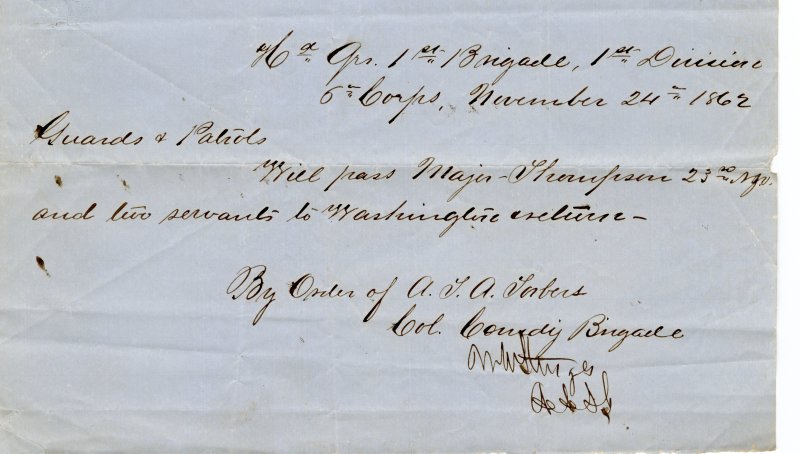 Hd Qrs. 1st Brigade, 1st Division
6th Corps, November 24th 1862
Guards & Patrols
Will pass Major Thompson 23rd N.J.V.
and two servants to Washington & return -
By Order of A. T. A. Torbert
Col. Comdg Brigade